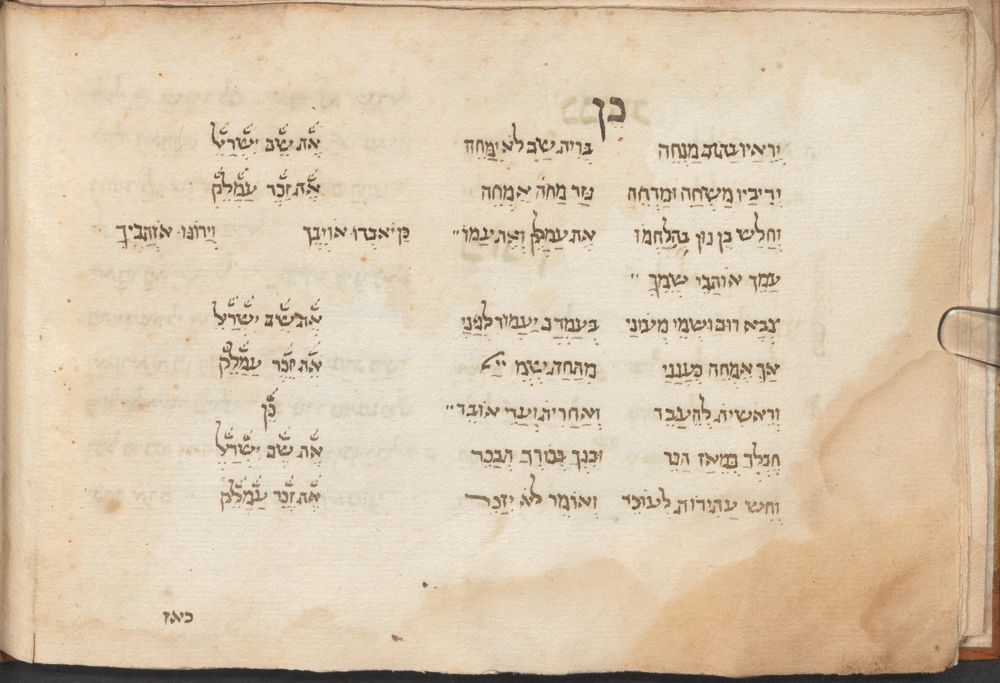 כן
יראיו בהגב מנחה ברית שב לא ימחה את שם ישראל
יריביו משחה ומדחה נזר מחה אמחה את זכר עמלק
ויחלש בן נון בהלחמו את עמלק ואת עמו״ כן יאבדו אויביך וירונו אוהביך
עמך אוהבי שמך ״
צבא רום ושמי מעוני בעמדם יעמוד לפני את שם ישראל
אך אמחה כענני מתחת שמי את זכר עמלק
וראשית להעבד ואחריתו עדי אובד״ כן
חבלך כמאז הכר ובנך בכורך הבכר את שם ישראל
וחש עתידות לעוכר ואומר לא יזכר את זכר עמלק
כאז